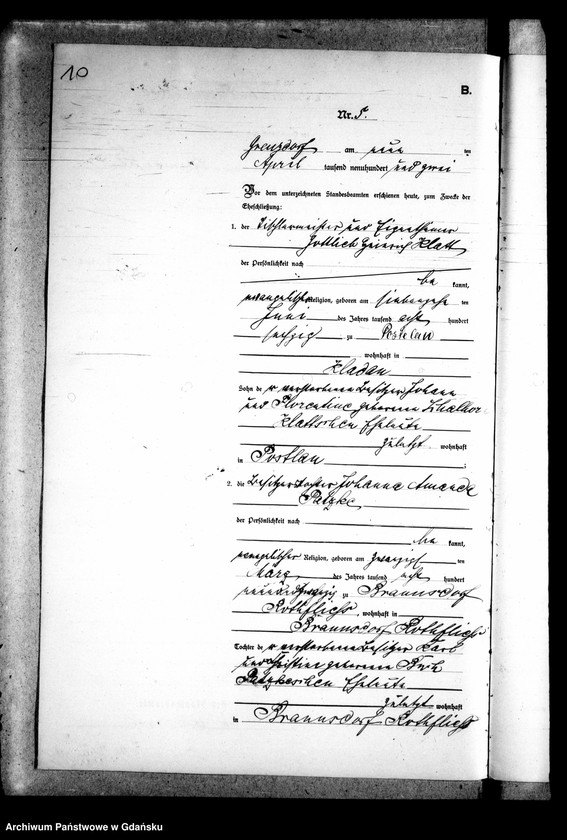 10
B.
Nr. 5.
am neun ten
April tausend neunhundert und zwei
Vor dem unterzeichneten Standesbeamten erschienen heute, zum Zwecke der
Eheschließung:
1. der Tischlermeister und Eigenthümer
Gottlieb Heinrich Klatt
der Persönlichkeit nach
be kannt,
evangelischer Religion, geboren am siebenzehn ten
Juni des Jahres tausend acht hundert
sechzig zu Postelau
, wohnhaft in
Kladau
Sohn de r verstorbenen Besitzer Johann
und Florentine geborene
Klattschen Eheleute
zuletzt wohnhaft
in Postlau ;
2. die Besitzertochter Johanna Amanda
Patzke
der Persönlichkeit nach
be kannt,
evangelischer Religion, geboren am zwanzigs ten
März des Jahres tausend acht hundert
neunundsechzig zu Braunsdorf
Rothfließ, wohnhaft in
Braunsdorf Rothfließ
Tochter de r verstorbenen Besitzer Karl
und Christine geborene
Patzkeschen Eheleute
zuletzt wohnhaft
in Braunsdorf Rothfließ
Archiwum Państwowe w Gdańsku